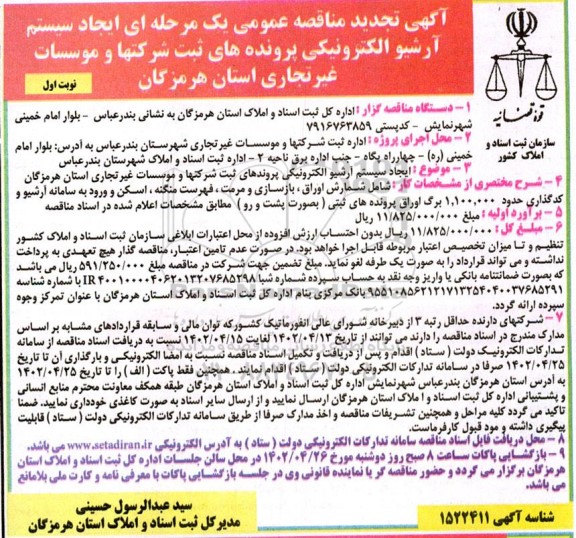 آگهی تجدید مناقصه عمومی یک مرحله ای ایجاد سیستم
آرشیو الکترونیکی پرونده های ثبت شرکتها و موسسات
غیرتجاری استان هرمزگان
نوبت اول
قوه قضائیه
سازمان ثبت اسناد و
املاک کشور
۱ - دستگاه مناقصه گزار : اداره کل ثبت اسناد و املاک استان هرمزگان به نشانی بندرعباس - بلوار امام خمینی
شهرنمایش - کدپستی ۷۹۱۶۷۶۳۸۵۹
۲ - محل اجرای پروژه : اداره ثبت شرکتها و موسسات غیرتجاری شهرستان بندرعباس به آدرس: بلوار امام
خمینی (ره) - چهارراه پگاه - جنب اداره برق ناحیه ۲ - اداره ثبت اسناد و املاک شهرستان بندرعباس
۳ - موضوع : ایجاد سیستم آرشیو الکترونیکی پروندهای ثبت شرکتها و موسسات غیرتجاری استان هرمزگان
۴ - شرح مختصری از مشخصات کار : شامل شمارش اوراق ، بازسازی و مرمت ، فهرست منگنه ، اسکن و ورود به سامانه آرشیو و
کدگذاری حدود ۱,۱۰۰,۰۰۰ برگ اوراق پرونده های ثبتی ( بصورت پشت و رو ) مطابق مشخصات اعلام شده در اسناد مناقصه
۵ - برآورد اولیه : مبلغ ۱۱/۸۲۵/۰۰۰/۰۰۰ ریال
۶ - مبلغ کل : ۱۱/۸۲۵/۰۰۰/۰۰۰ ریال بدون احتساب ارزش افزوده از محل اعتبارات ابلاغی سازمان ثبت اسناد و املاک کشور
تنظیم و تا میزان تخصیص اعتبار مربوطه قابل اجرا خواهد بود. در صورت عدم تامین اعتبار، مناقصه گذار هیچ تعهدی به پرداخت
نداشته و می تواند قرارداد را به صورت یک طرفه لغو نماید. مبلغ تضمین جهت شرکت در مناقصه مبلغ ۵۹۱/۲۵۰/۰۰۰ ریال می باشد
که بصورت ضمانتنامه بانکی یا واریز وجه نقد به حساب سپرده شماره شبا با شماره شناسه
بانک مرکزی بنام اداره کل ثبت اسناد و املاک استان هرمزگان با عنوان تمرکز وجوه
سپرده ارائه گردد.
۷ - شرکتهای دارنده حداقل رتبه ۳ از دبیرخانه شورای عالی انفورماتیک کشور که توان مالی و سابقه قراردادهای مشابه بر اساس
مدارک مندرج در اسناد مناقصه را دارند می توانند از تاریخ ۱۴۰۲/۰۴/۱۳ لغایت ۱۴۰۲/۰۴/۱۵ نسبت به دریافت اسناد مناقصه از سامانه
تدارکات الکترونیک دولت ( ستاد ) اقدام و پس از دریافت و تکمیل اسناد مناقصه نسبت به امضا الکترونیکی و بارگذاری آن تا تاریخ
۱۴۰۲/۰۴/۲۵ صرفا در سامانه تدارکات الکترونیکی دولت ( ستاد ) اقدام نمایند. همچنین فقط پاکت ( الف ) را تا تاریخ ۱۴۰۲/۰۴/۲۵
به آدرس استان هرمزگان بندرعباس شهرنمایش اداره کل ثبت اسناد و املاک استان هرمزگان طبقه همکف معاونت محترم منابع انسانی
و پشتیبانی اداره کل ثبت اسناد و املاک استان هرمزگان ارسال نمایید و از ارسال سایر اسناد به صورت کاغذی خودداری نمایید. ضمنا
تاکید می گردد کلیه مراحل و همچنین تشریفات مناقصه و اخذ مدارک صرفا از طریق سامانه تدارکات الکترونیکی دولت ( ستاد ) قابلیت
پیگیری داشته و مورد قبول کارفرماست.
۸ - محل دریافت فایل اسناد مناقصه سامانه تدارکات الکترونیکی دولت ( ستاد ) به آدرس الکترونیکی www.setadiran.ir می باشد.
۹ - بازگشایی پاکات ساعت ۸ صبح روز دوشنبه مورخ ۱۴۰۲/۰۴/۲۶ در محل سالن جلسات اداره کل ثبت اسناد و املاک استان
هرمزگان برگزار می گردد و حضور مناقصه گر یا نماینده قانونی وی در جلسه بازگشایی پاکات با معرفی نامه و کارت ملی بلامانع
می باشد.
سید عبدالرسول حسینی
مدیرکل ثبت اسناد و املاک استان هرمزگان
شناسه آگهی ۱۵۲۲۴۱۱